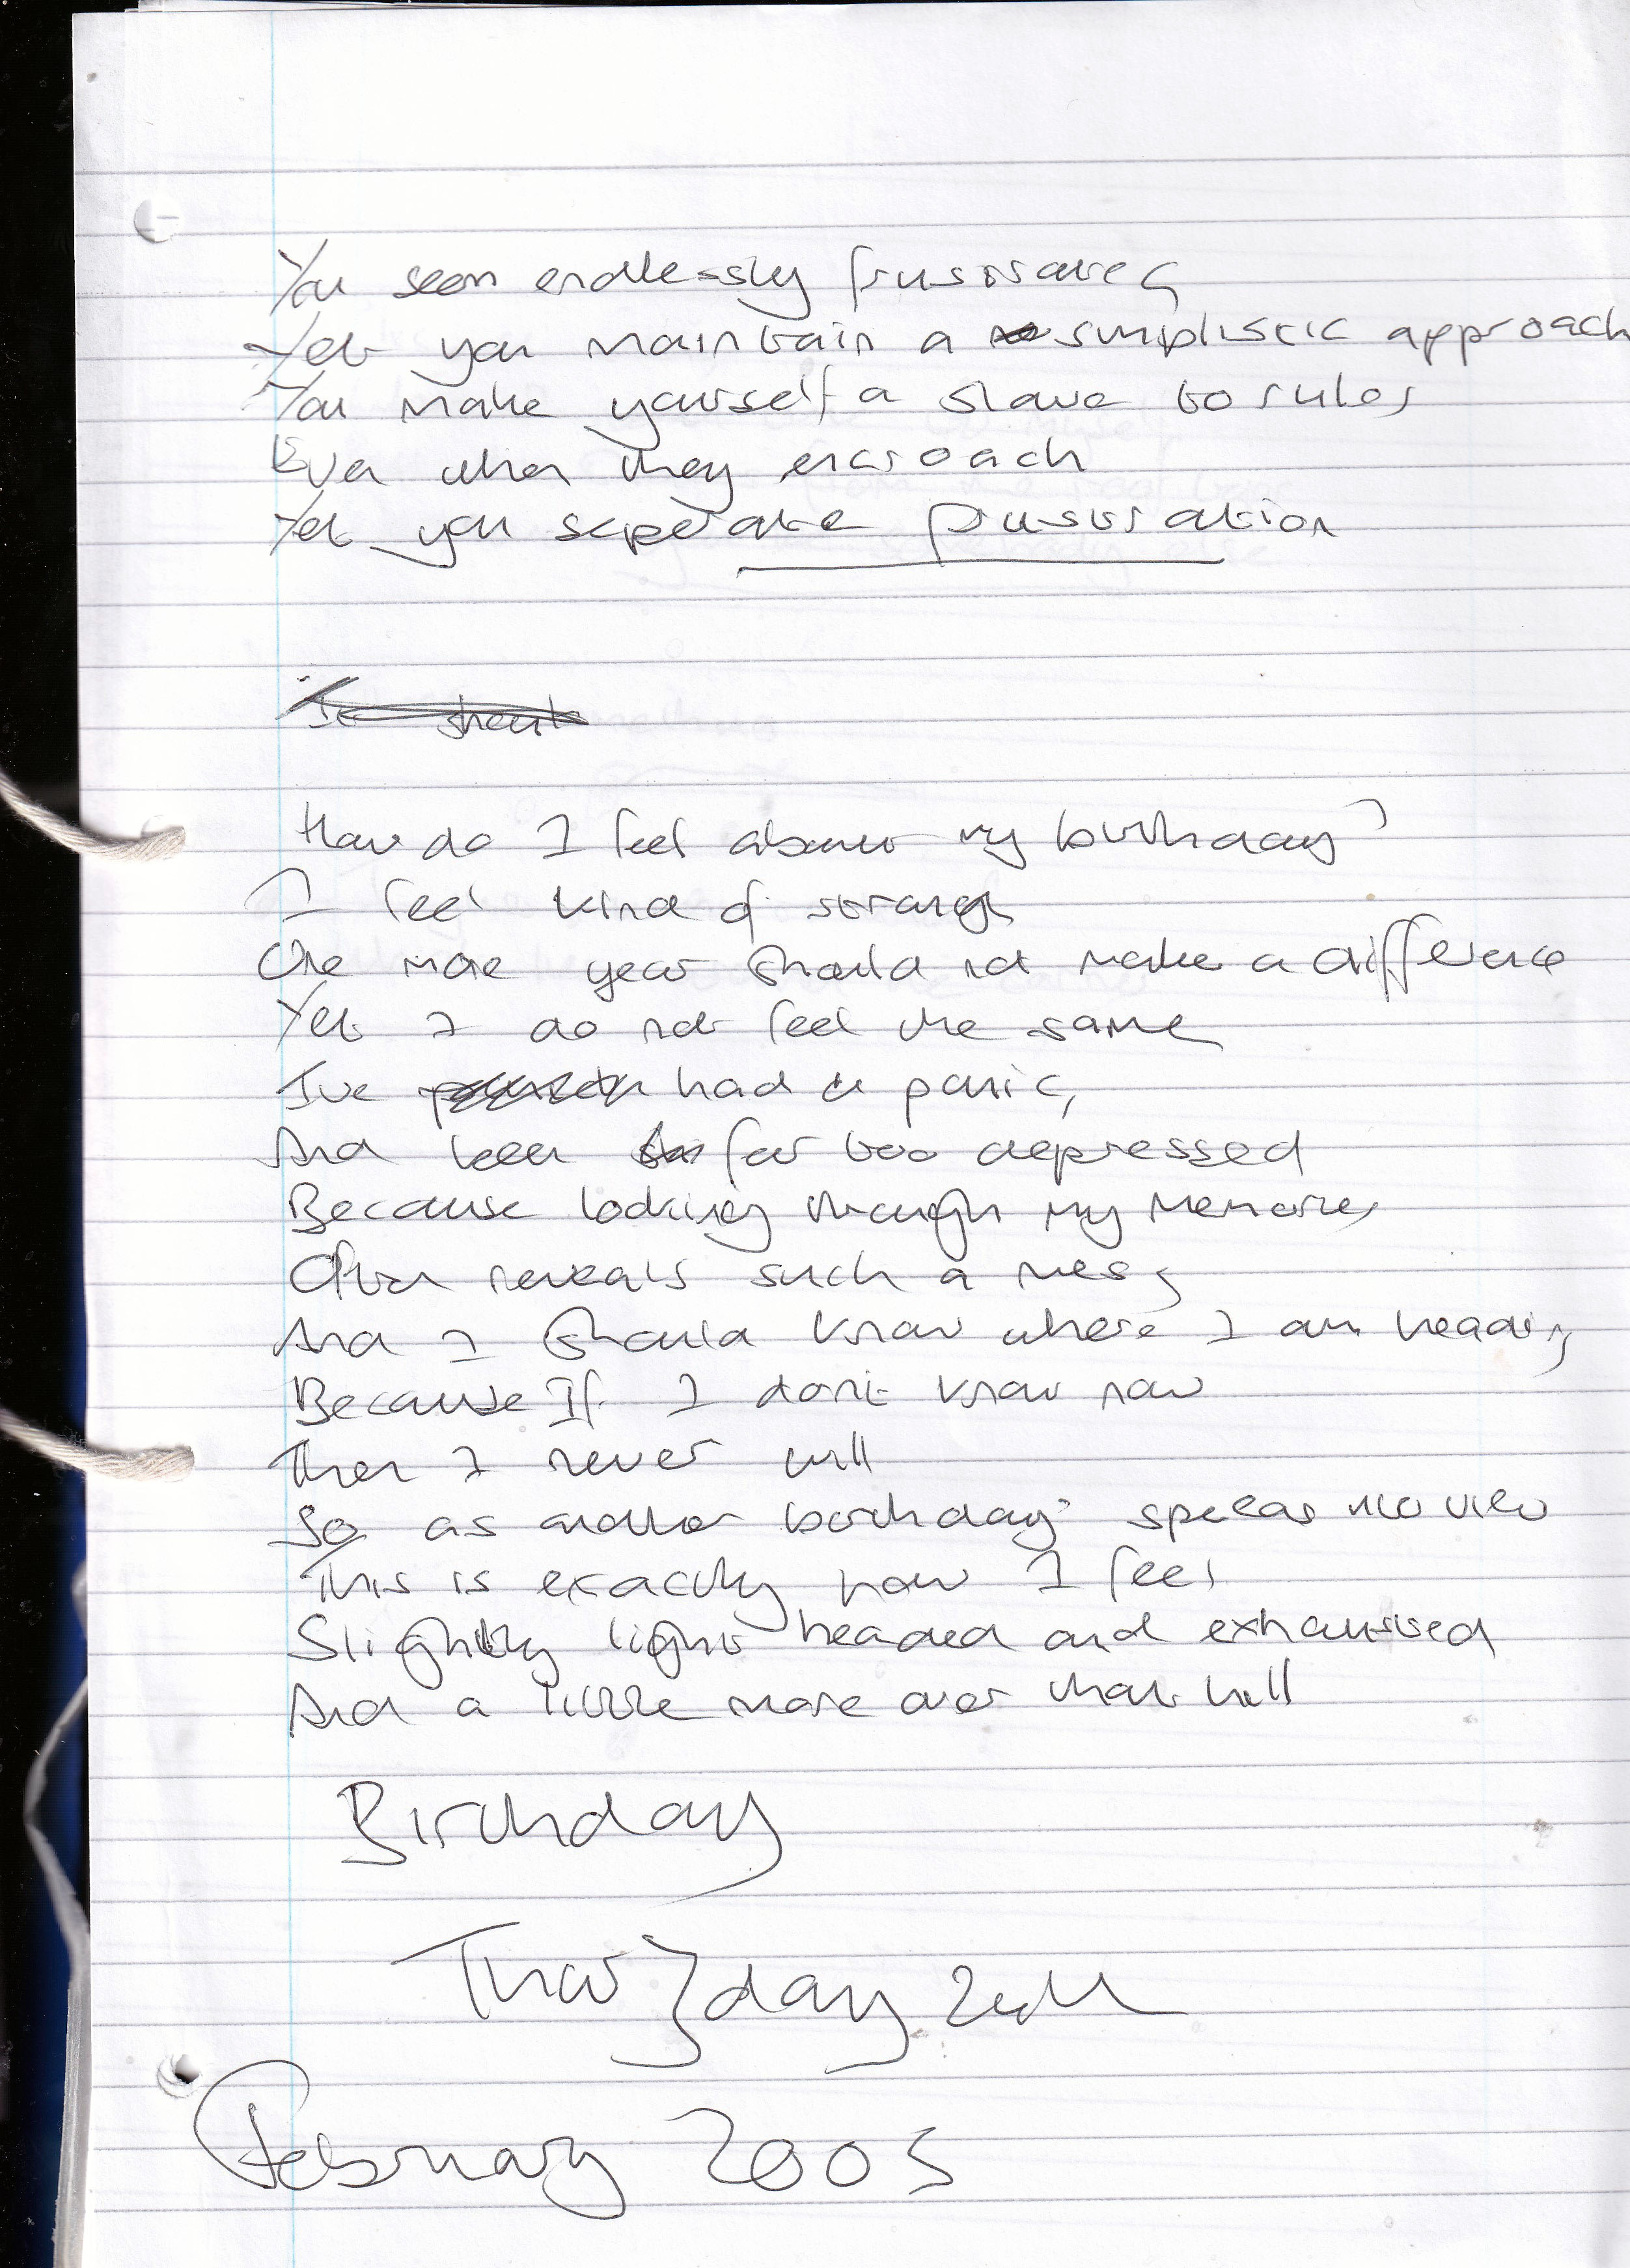 You seem endlessly frustrated
Yet you maintain a simplistic approach
You make yourself a slave to rules
Even when they encroach
Yet you seperate frustration
How do I feel about my birthday?
I feel kind of strange
One more year should not make a difference
Yet I do not feel the same
I've had a panic,
And been far too depressed
Because looking through my memories
Often reveals such a mess
And I should know where I am heading
Because If I don't know now
Then I never will
So as another birthday into view
This is exactly how I feel
Slightly light headed and exhausted
And a little more over that hill
Birthday
day
February 2005